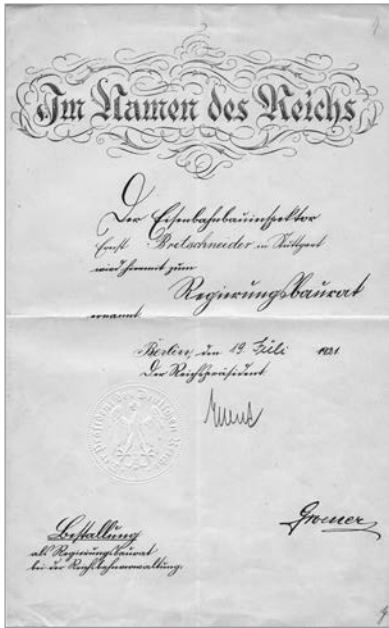 Im Namen des Reichs
Der Eisenbahnbauinspektor
Ernst Bretschneider in Stuttgart
wird hiermit zum
Regierungsbaurat
ernannt.
Berlin, den 19. Juli 1921
Der Reichspräsident
Ebert
Groener
Bestallung
als Regierungsbaurat
bei der Reichsbahnverwaltung.